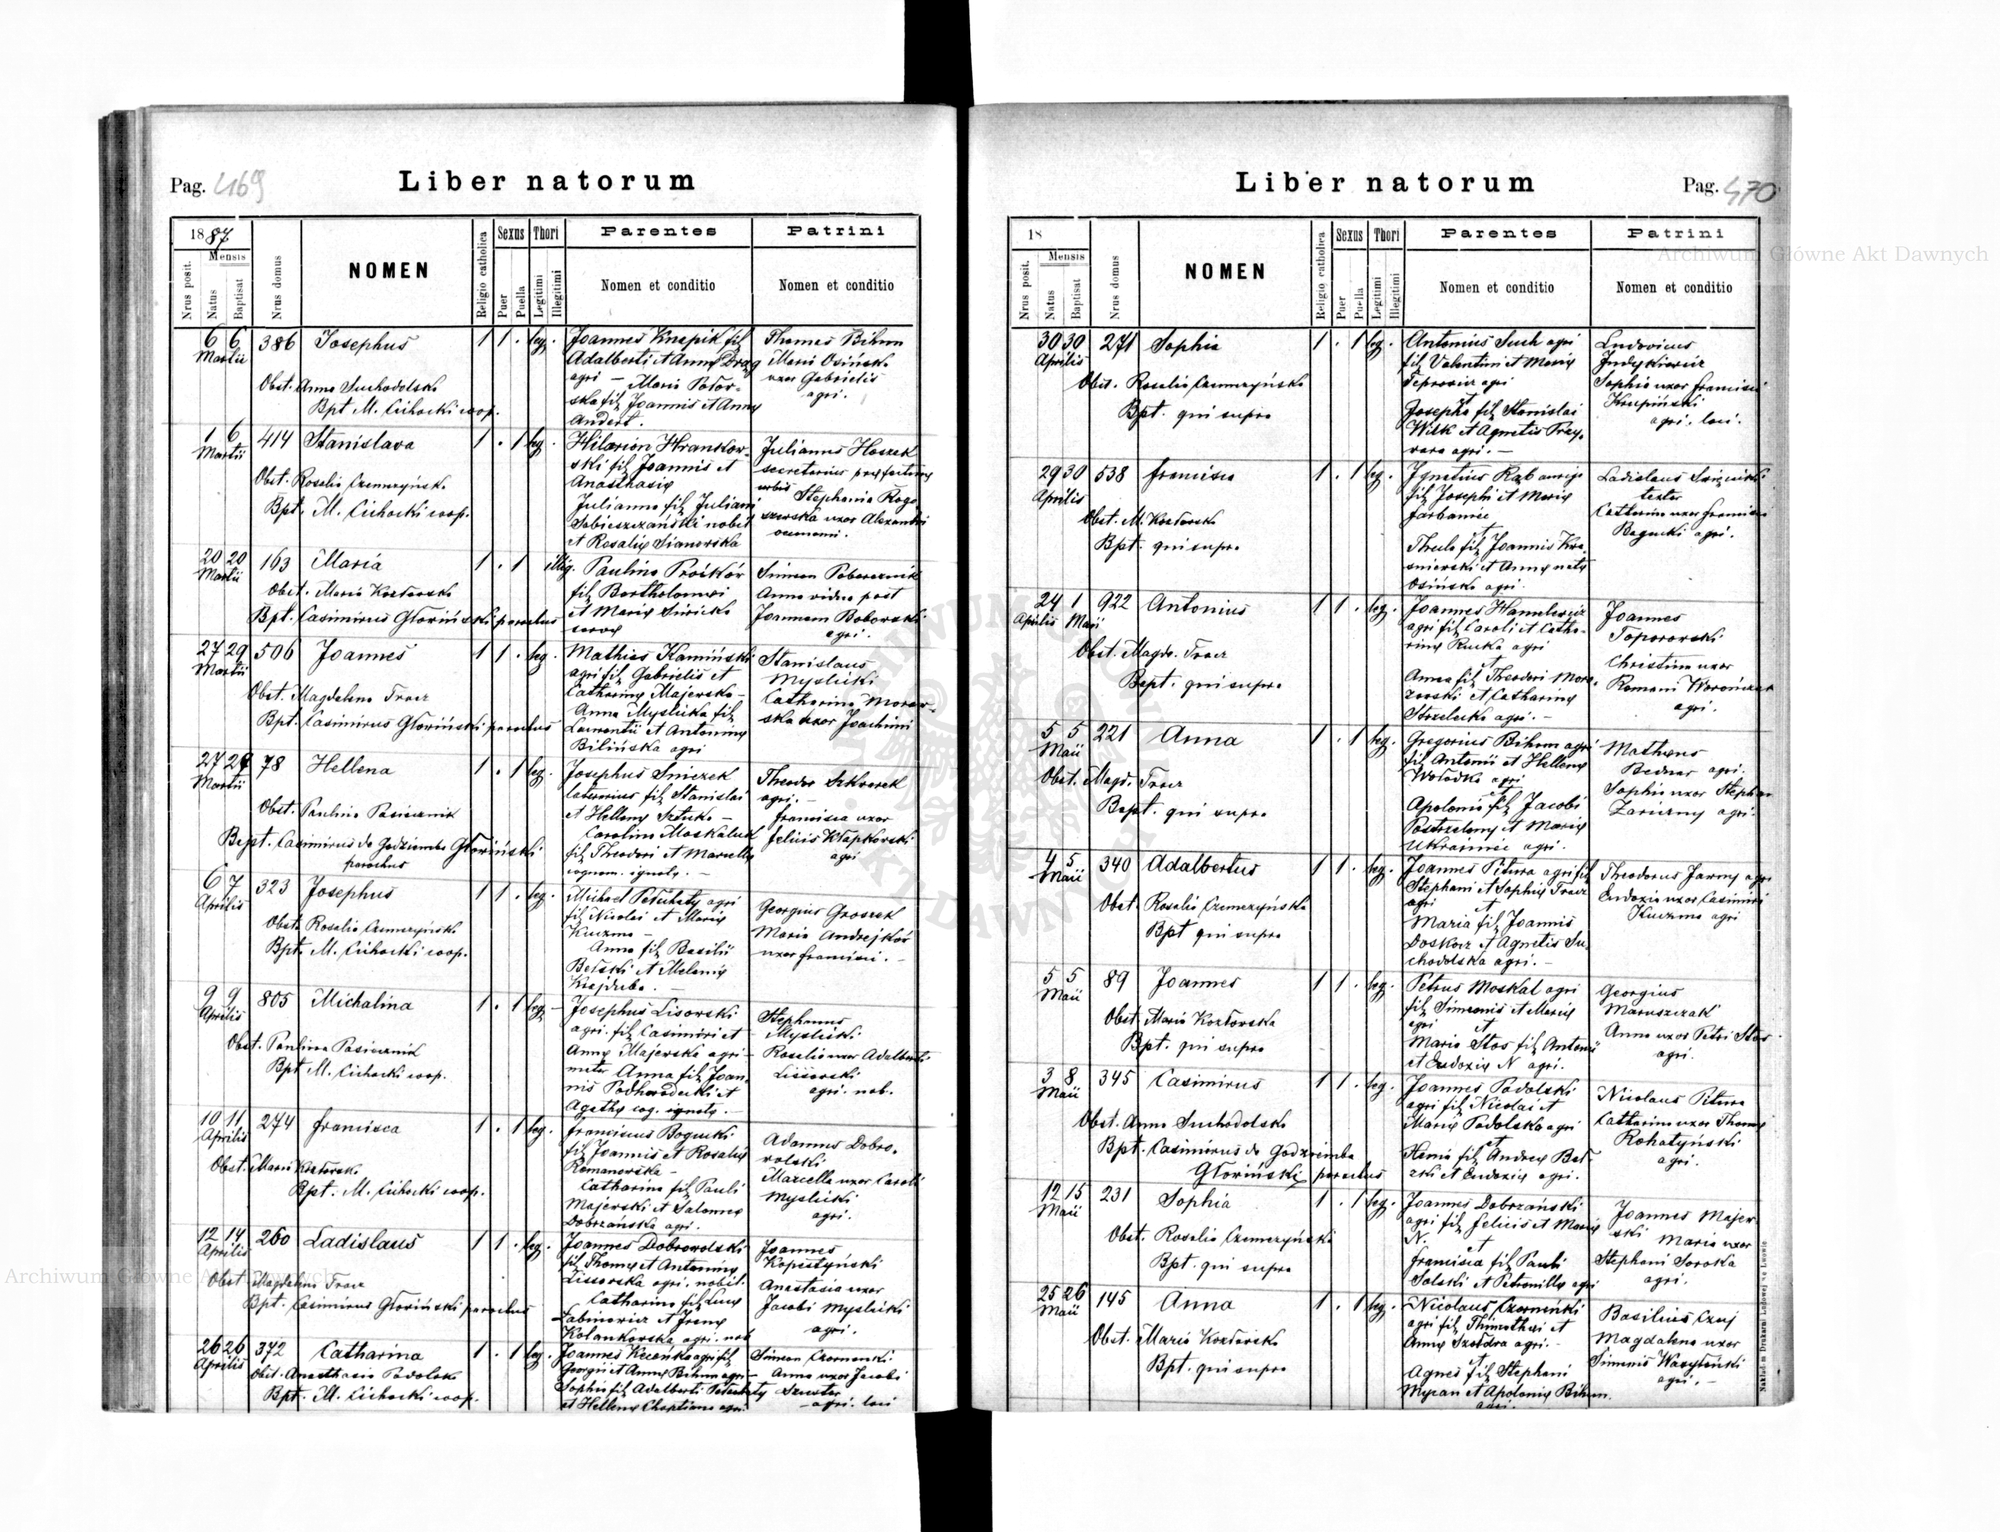 Pag. 469
Liber natorum
1887
Mensis
Nrus posit.
Natus
Baptisat
Nrus domus
NOMEN
Religio catholica
Sexus
Puer
Puella
Thori
Legitimi
Illegitimi
Parentes
Nomen et conditio
Patrini
Nomen et conditio
6 6 Martii 386 Josephus 1 1 . leg.
Obst. Anna Suchodolska
Bpt M. Cichocki coop.
Joannes Knapik fil
Adalberti et Anna
agri — Maria
ska fil Joannis et Anny
Andert.
Thomas Bihun
Maria Osińska
uxor Gabrielis
agri.
1 6 Martii 414 Stanislava 1 . 1 leg.
Obst. Rosalia Czemeryńska
Bpt. M. Cichocki coop.
Hilarion Hrankow-
ski fil Joannis et
Anasthasiy
Julianna fil Juliani
Sobieszczański nobil
et Rosaliy Sianowska
Julianus Hoszek
secretarius
urbis
Stephania Rogo
szewska uxor Alexandri
20 20 Martii 163 Maria 1 . 1 illeg.
Obst. Maria Kozłowska
Bpt. Casimirus Głoviński parochus
Paulina Prońków
fil Bartholomei
et Mariy
Simeon Pobereznik
Anna vidua post
Joannem Boborski
agri.
27 29 Martii 506 Joannes 1 1 . leg.
Obst. Magdalena Tracz
Bpt. Casimirus Głoviński parochus
Mathias Kamiński
agri fil Gabrielis et
Cathariny Majewska —
Anna Myslicka fil
Laurentii et Antoniny
Bilińska agri
Stanislaus
Myslicki
Catharina Moraw-
ska uxor Joachimi
27 27 Martii 78 Hellena 1 . 1 leg.
Obst. Paulina Pasicznik
Bpt. Casimirus de Godziemba Głoviński
parochus
Josephus Sniezek
laternius fil Stanislai
et Helleny Sztuka —
Carolina Moskaluk
fil Theodori et Marcelly
cognom. ignoty. —
Theodor Szkwarek
agri. —
Francisca uxor
Felicis Kłapkowski
agri
6 7 Aprilis 323 Josephus 1 1 . leg.
Obst. Rosalia Czemeryńska
Bpt. M. Cichocki coop.
Michael Petchaty agri
fil Nicolai et Mariy
Kuczma —
Anna fil Basilii
Belski et Melaniy
Georgius Groszek
Maria Andrejków
uxor Francisci. —
9 9 Aprilis 805 Michalina 1 . 1 leg —
Obst. Paulina Pasicznik
Bpt. M. Cichocki coop.
Josephus Lisowski
agri. fil Casimiri et
Anny Majewska agri —
mater Anna fil Joan-
nis Podhorodecki et
Agathy cog. ignoty. —
Stephanus
Myslicki
Rosalia uxor Adalberti
Lissowski
agri. nob.
10 11 Aprilis 274 Francisca 1 . 1 leg.
Obst. Maria Kozłowska
Bpt. M. Cichocki coop.
Franciscus Bogucki
fil Joannis et Rosaliy
Romanowska —
Catharina fil Pauli
Majewski et Salomey
Dobrzańska agri.
Adamus Dobro-
wolski
Marcella uxor Caroli
Myslicki
agri.
12 14 Aprilis 260 Ladislaus 1 1 . leg.
Obst. Magdalena Tracz
Bpt. Casimirus Głoviński parochus
Joannes Dobrowolski
fil Thomy et Antoniny
Lissowska agri. nobil.
Catharina fil Lucy
Łabinowicz et Ireny
Kolankowska agri. nob
Joannes
Kopestyński
Anastasia uxor
Jacobi Myslicki
agri.
26 26 Aprilis 372 Catharina 1 . 1 leg.
Obst. Anasthasia Podolska
Bpt. M. Cichocki coop.
Joannes agri fil
Georgii et Anny Bihun agri —
Sophia fil Adalberti Petchaty
et Helleny Chaptiana agri.
Simeon Czornenki
Anna uxor Jacobi
Szuster
— agri. loci
Liber natorum
Pag. 470
18
Mensis
Nrus posit.
Natus
Baptisat
Nrus domus
NOMEN
Religio catholica
Sexus
Puer
Puella
Thori
Legitimi
Illegitimi
Parentes
Nomen et conditio
Patrini
Nomen et conditio
30 30 Aprilis 271 Sophia 1 . 1 leg.
Obst. Rosalia Czemeryńska
Bpt. qui supra
Antonius Such agri
fil Valentini et Mariy
Teprowicz agri
et
Josepha fil Stanislai
Wilk et Agnetis Przy-
wara agri. —
Ludovicus
Jndykiewicz
Sophia uxor Francisci
Krupiński
agri. loci.
29 30 Aprilis 538 Francisca 1 . 1 leg.
Obst. M. Kozłowska
Bpt. qui supra
Jgnatius Rąb auriga
fil Josephi et Mariy
Farbaniec
et
Thecla fil Joannis Kra-
sniewski et Anny nata
Osińska agri.
Ladislaus
textor
Catharina uxor Francisci
Bogucki agri.
24 Aprilis 1 Maii 922 Antonius 1 1 . leg.
Obst. Magda. Tracz
Bapt. qui supra
Joannes Hamulewicz
agri fil Caroli et Catha-
riny Rucka agri
et
Anna fil Theodori Moro-
zowski et Catharina
Strzelecka agri. —
Joannes
Toporowski
Christina uxor
Romani Worończak
agri.
5 5 Maii 221 Anna 1 . 1 leg.
Obst. Magd. Tracz
Bapt. qui supra
Gregorius Bihun agri
fil Antonii et Helleny
Wołodka agri
et
Apolonia fil Jacobi
Postrzelony et Mariy
Ukrainiec agri.
Matheus
Bednar agri.
Sophia uxor Stephani
Zariczny agri.
4 5 Maii 340 Adalbertus 1 1 . leg.
Obst. Rosalia Czemeryńska
Bpt qui supra
Joannes Pitura agri fil
Stephani et Sophiy Tracz
agri et
Maria fil Joannis
Doskocz et Agnetis Su-
chodolska agri. —
Theodorus Jarmy agri
Eudoxia uxor Casimiri
Kuczma agri
5 5 Maii 89 Joannes 1 1 . leg.
Obst. Maria Kozłowska
Bpt. qui supra
Petrus Moskal agri
fil Simeonis et Mariy
agri et
Maria Stos fil Antonii
et Eudoxiy N. agri.
Georgius
Maruszczak
Anna uxor Petri Stos
agri.
3 8 Maii 345 Casimirus 1 1 . leg
Obst. Anna Suchodolska
Bpt. Casimirus de Godziemba
Głoviński parochus
Joannes Podolski
agri fil Nicolai et
Mariy Podolska agri
et
Xenia fil Andrey Bał-
zki et Eudoxiy agri.
Nicolaus Pitura
Catharina uxor Thomy
Rohatyński
agri.
12 15 Maii 231 Sophia 1 . 1 leg.
Obst. Rosalia Czemeryńska
Bpt. qui supra
Joannes Dobrzański
agri fil Felicis et Mariy
N. et
Francisca fil Pauli
Solski et Petronilly agri
Joannes Majew-
ski Maria uxor
Stephani Soroka
agri.
25 26 Maii 145 Anna 1 . 1 leg.
Obst. Maria Kozłowska
Bpt. qui supra
Nicolaus Czorneńki
agri fil Thimothei et
Anny Szeldra agri. —
et
Agnes fil Stephani
Mycan et Apoloniy Bihun.
agri.
Basilius Czuj
Magdalena uxor
Simeonis Wasyleński
agri. —
Nakładem Drukarni Ludowej we Lwowie.
Archiwum Główne Akt Dawnych
Archiwum Główne Akt Dawnych
ARCHIWUM GŁÓWNE AKT DAWNYCH